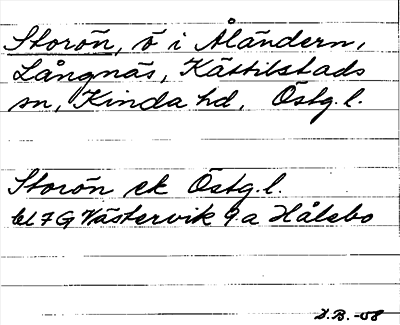 Storön, ö i Åländern,
Långnäs, Kättilstads
sn, Kinda hd, Östg. l.
Storön ek Östg. l.
bl 7G Västervik 9a Hålebo
D.B. -08